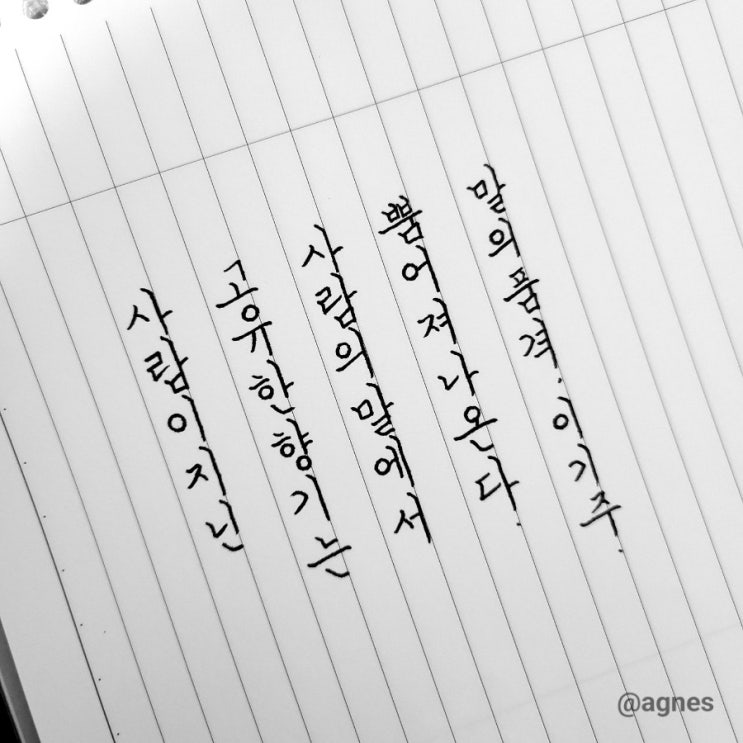 사람이 지닌
고유한 향기는
사람의 말에서
뿜어져 나온다.
말의 품격. 이기주.
@agnes